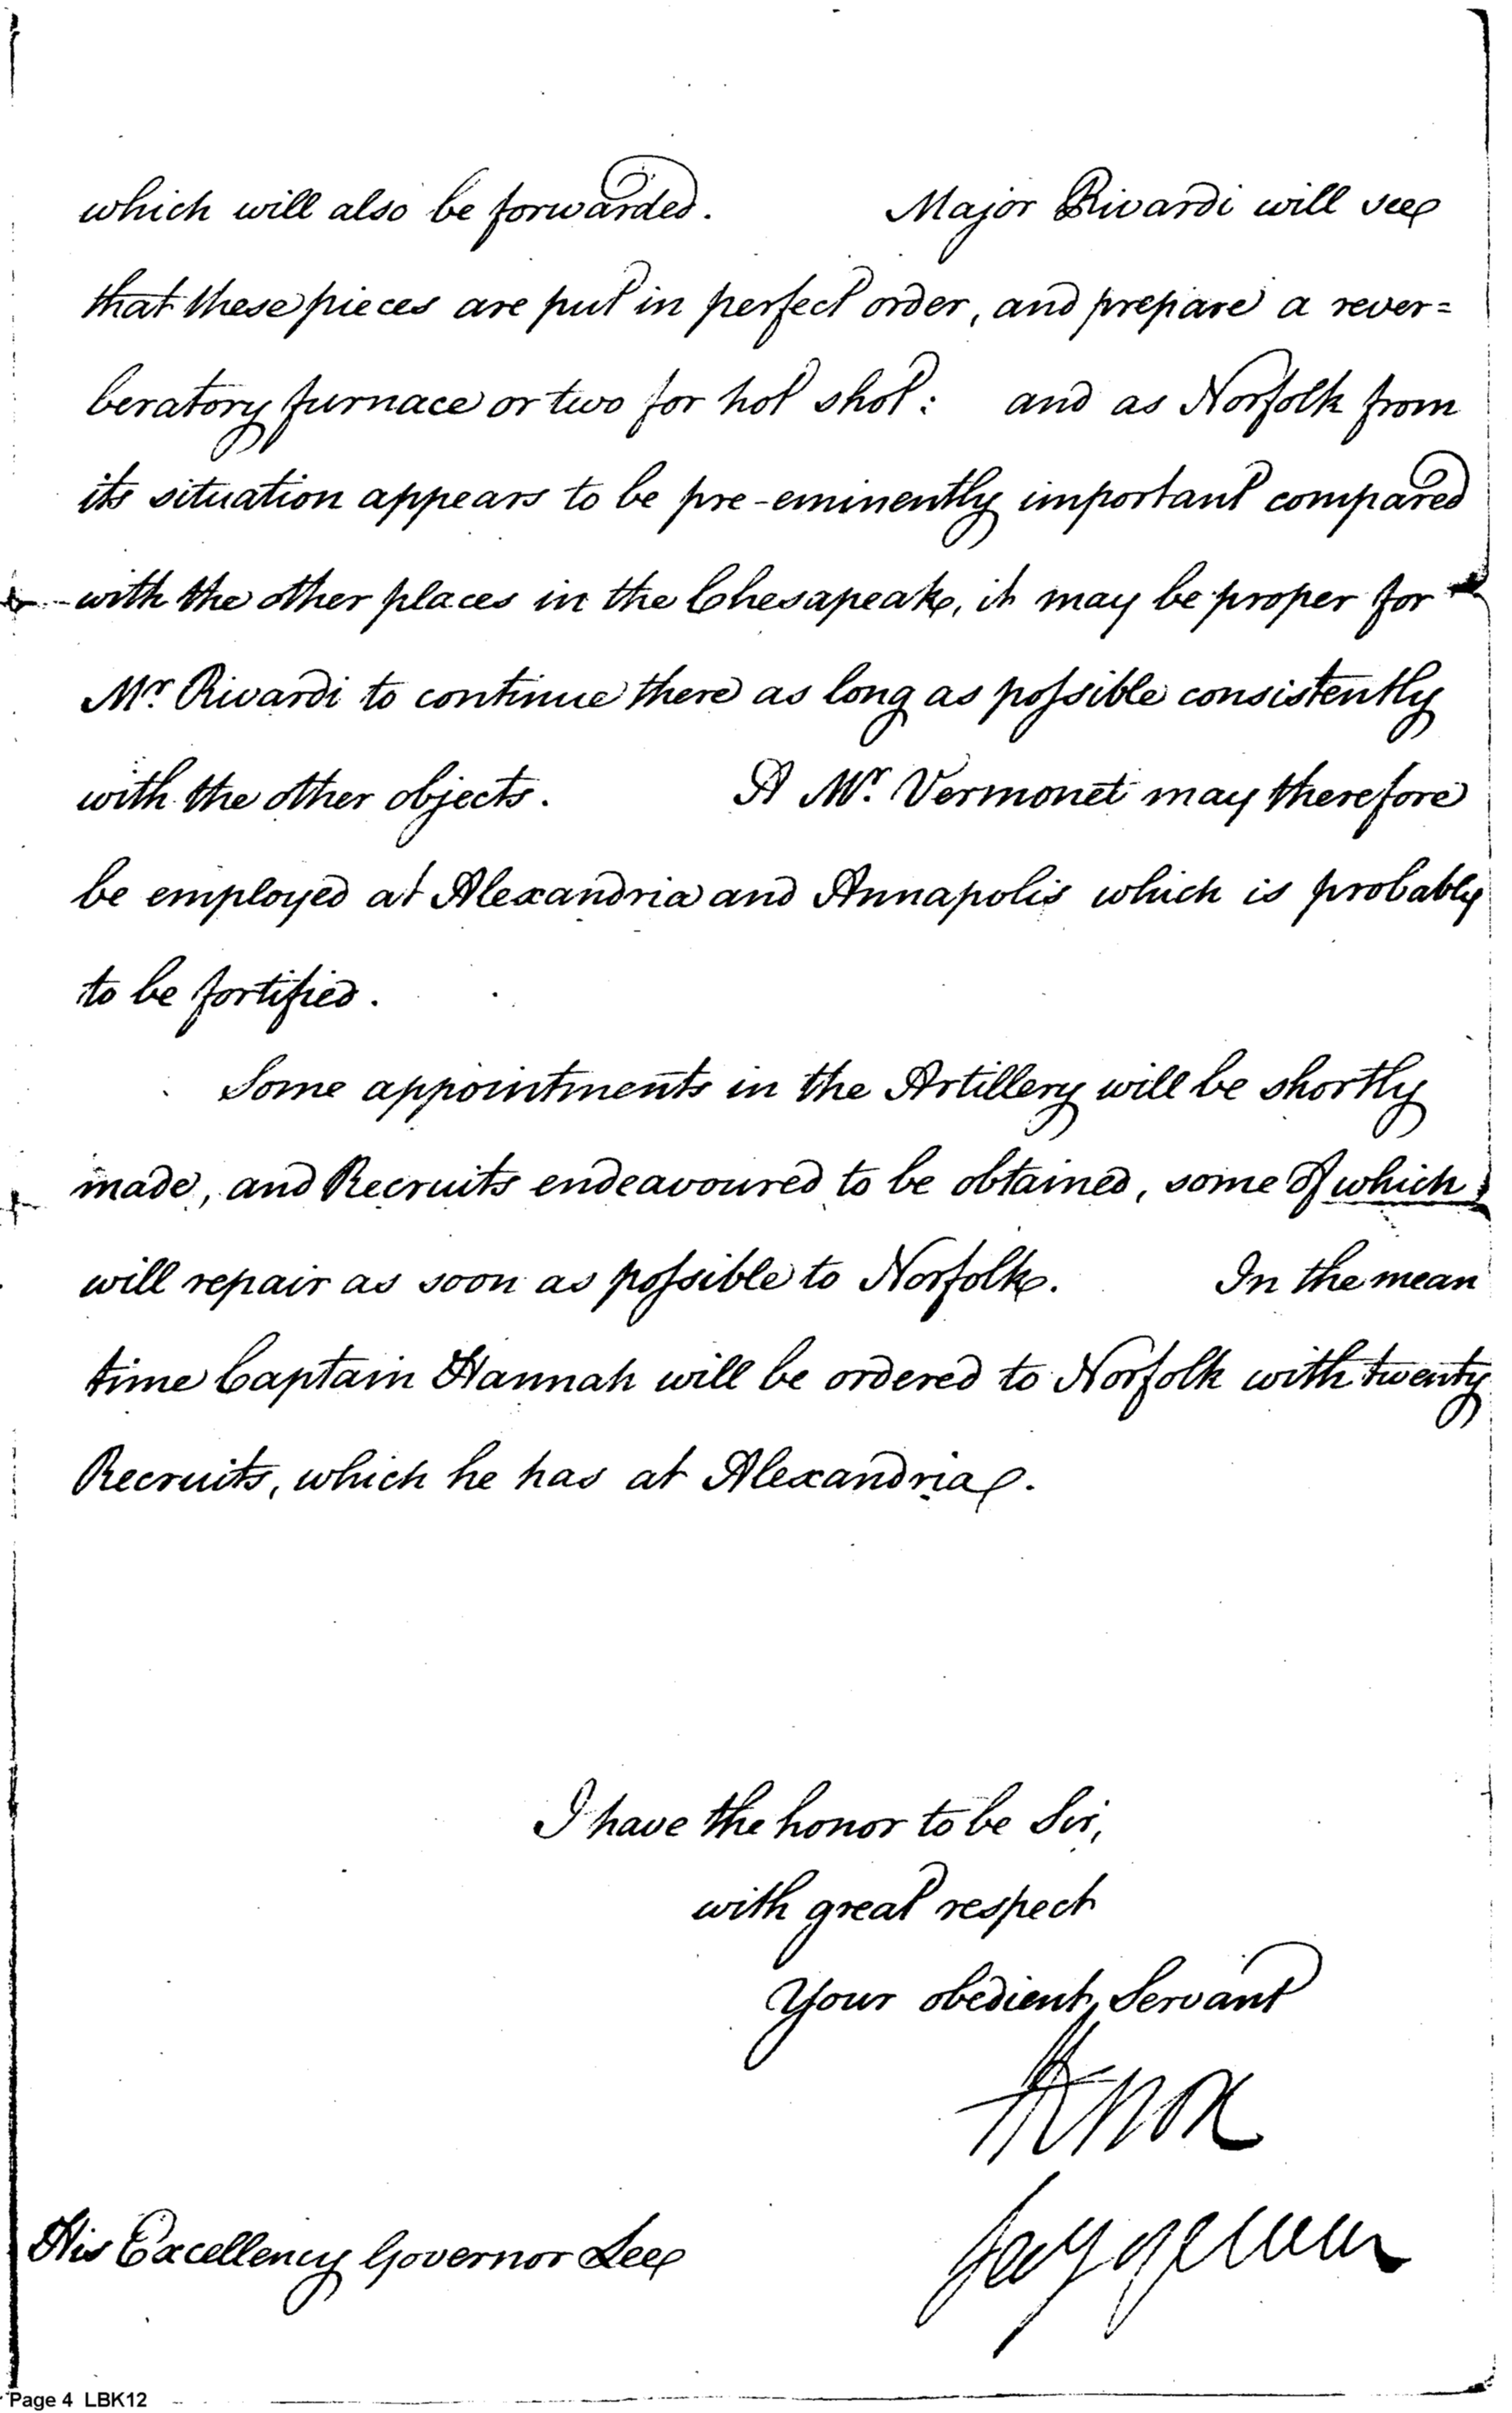 which will also be forwarded. Major Rivardi will see
that these pieces are put in perfect order, and prepare a rever=
beratory furnace or two for hot shot: and as Norfolk from
its situation appears to be pre-eminently important compared
with the other places in the Chesapeak, it may be proper for
Mr. Rivardi to continue there as long as possible consistently
with the other objects. A Mr. Vermonet may therefore
be employed at Alexandria and Annapolis which is probably
to be fortified.
Some appointments in the Artillery will be shortly
made, and Recruits endeavoured to be obtained, some of which
will repair as soon as possible to Norfolk. In the mean
time Captain Hannah will be ordered to Norfolk with twenty
Recruits, which he has at Alexandria.
I have the honor to be Sir,
with great respect
Your obedient Servant
HKnox
Secy of war
His Excellency Governor Lee
Page 4 LBK12